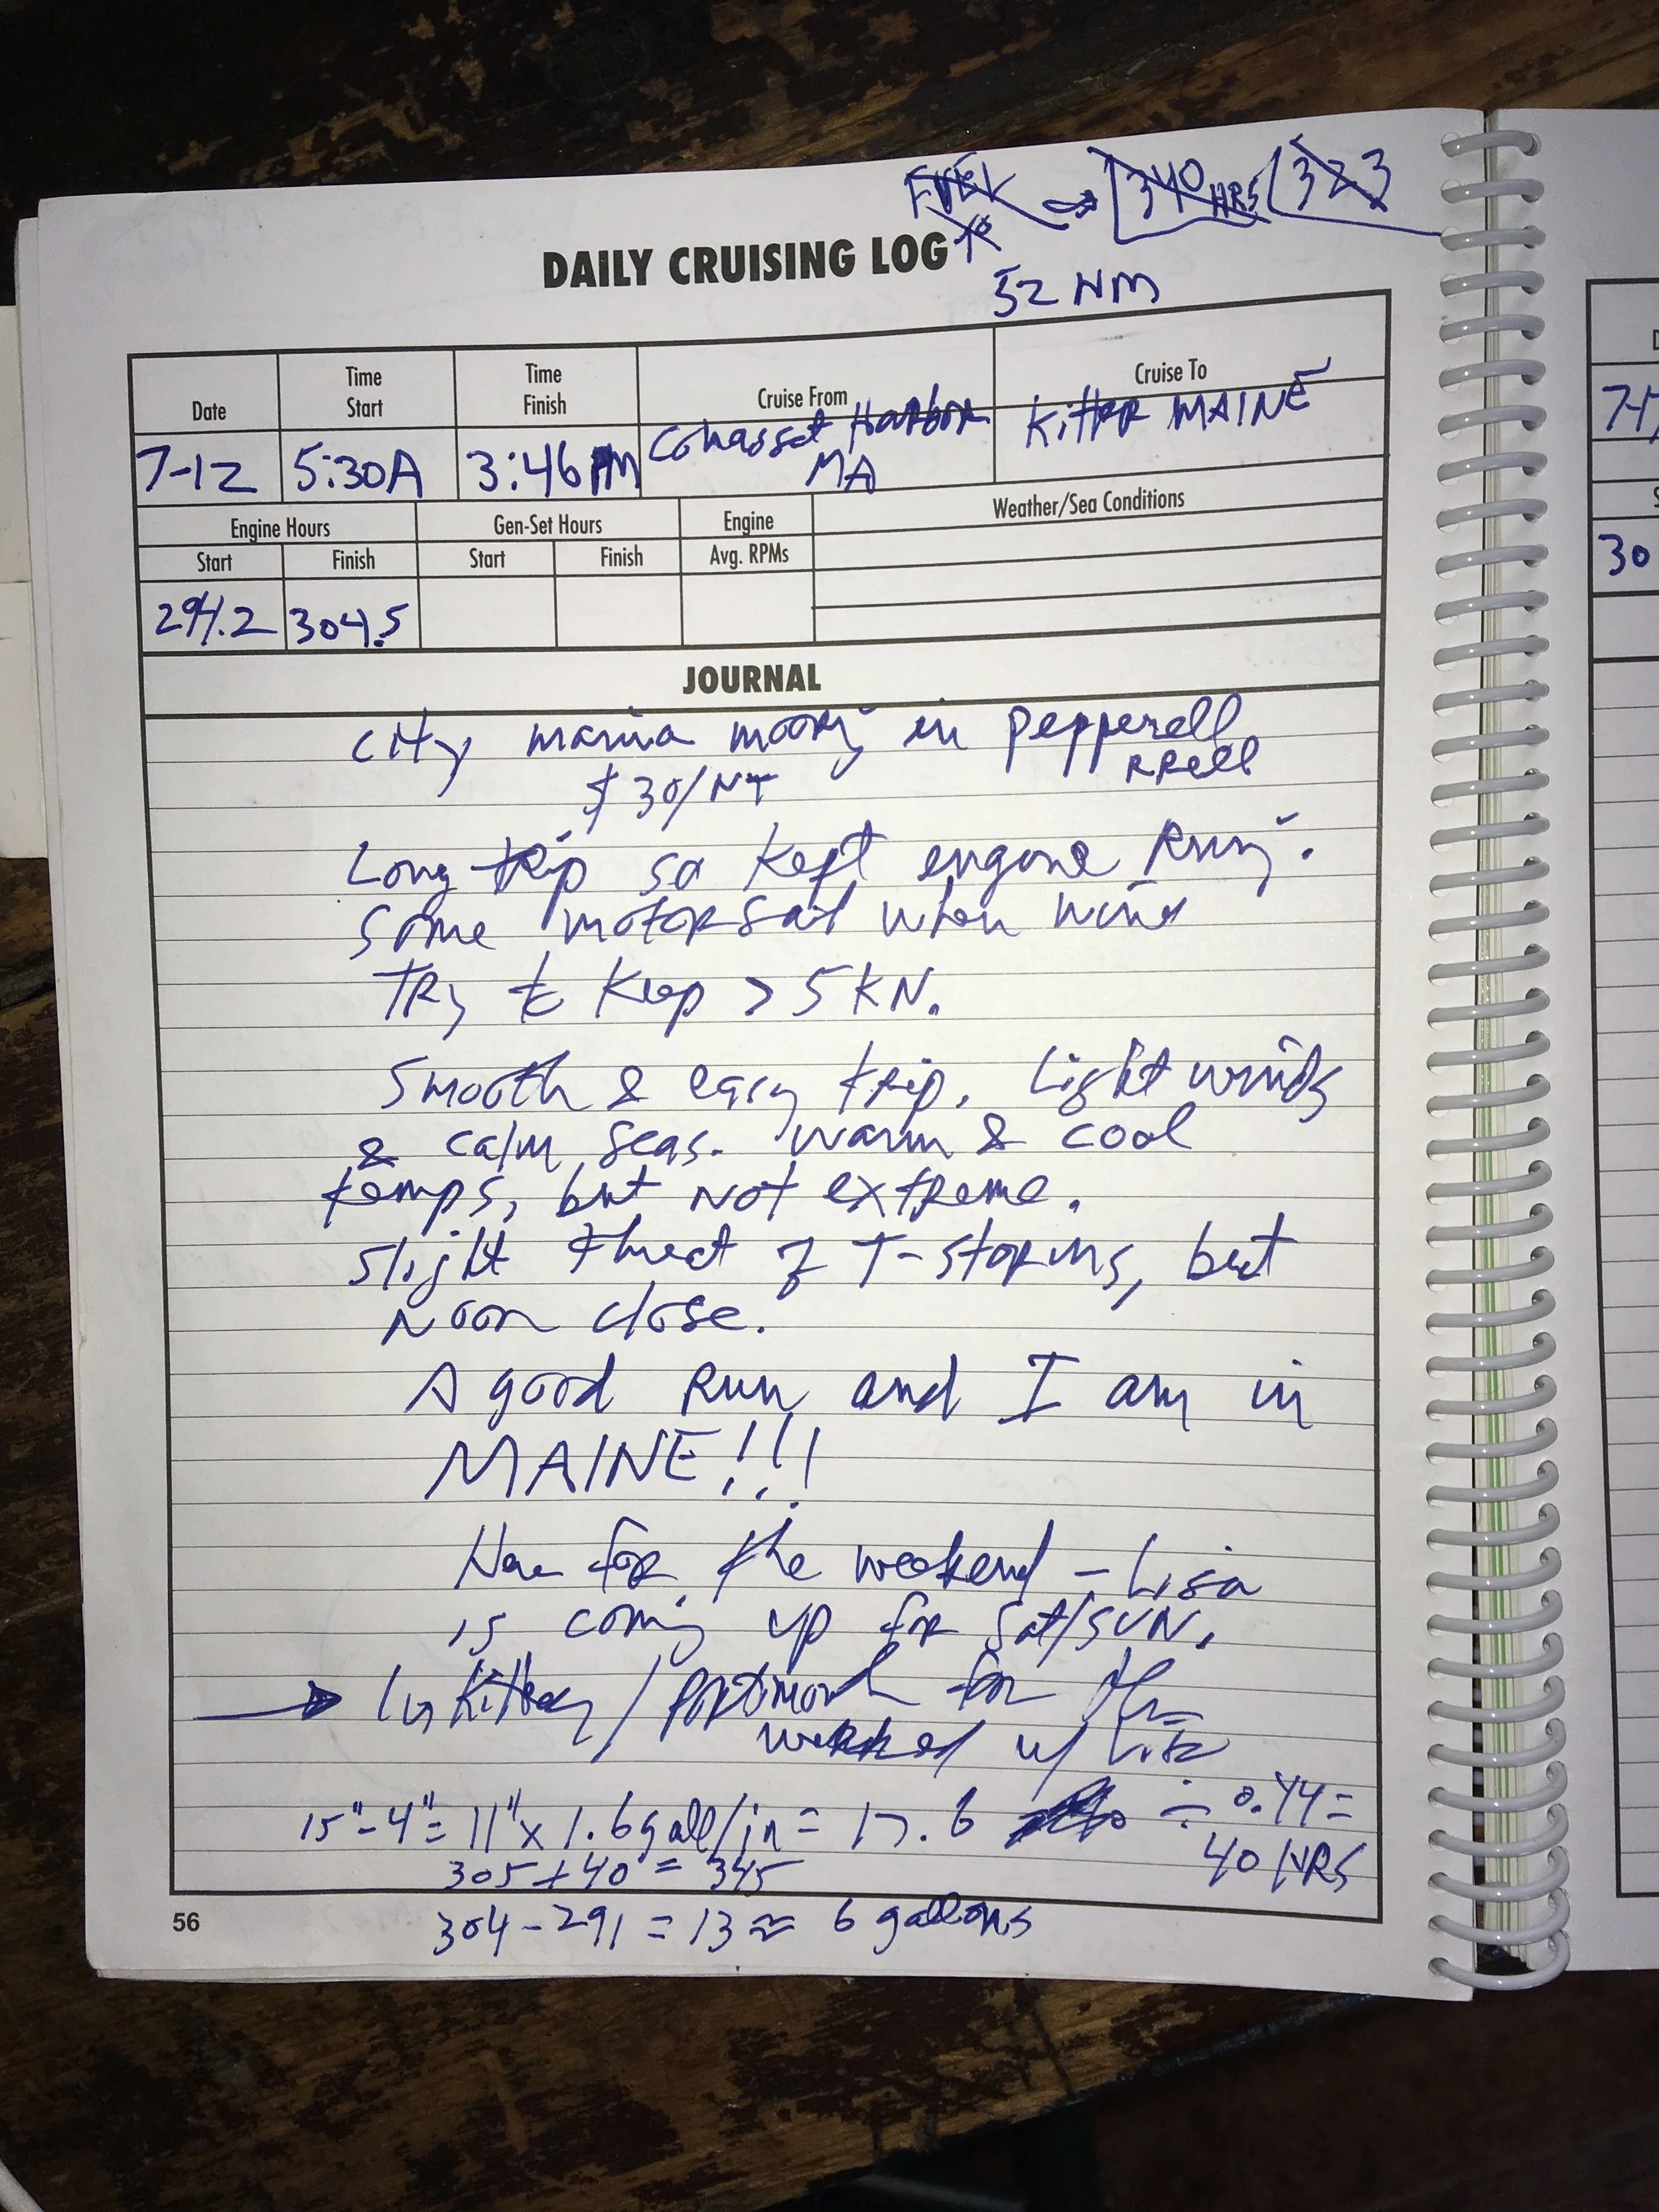 FUEL → 340 HRS 323
to
DAILY CRUISING LOG
52 NM
Date Time Start Time Finish Cruise From Cruise To
7-12 5:30A 3:46PM Cohasset Harbor MA MAINE
Engine Hours Gen-Set Hours Engine Weather/Sea Conditions
Start Finish Start Finish Avg. RPMs
294.2 304.5
JOURNAL
city marina in Pepperell
$30/NT RRell
Long trip so kept engone
Some motorsail when wind
TRy to Keep > 5 KN.
Smooth & easy trip. Light winds
& calm seas. Warm & cool
temps, but NOT extreme.
Slight threat of T-storms, but
close.
A good Run and I am in
MAINE!!!
for the weekend - Lisa
is coming up for Sat/SUN.
→ In Kittery / for the
w/
15"-4"= 11" x 1.6 gall/in = 17.6 ÷ 0.44 =
40 HRS
305 + 40 = 345
304 - 291 = 13 ≈ 6 gallons
56
7-1
30